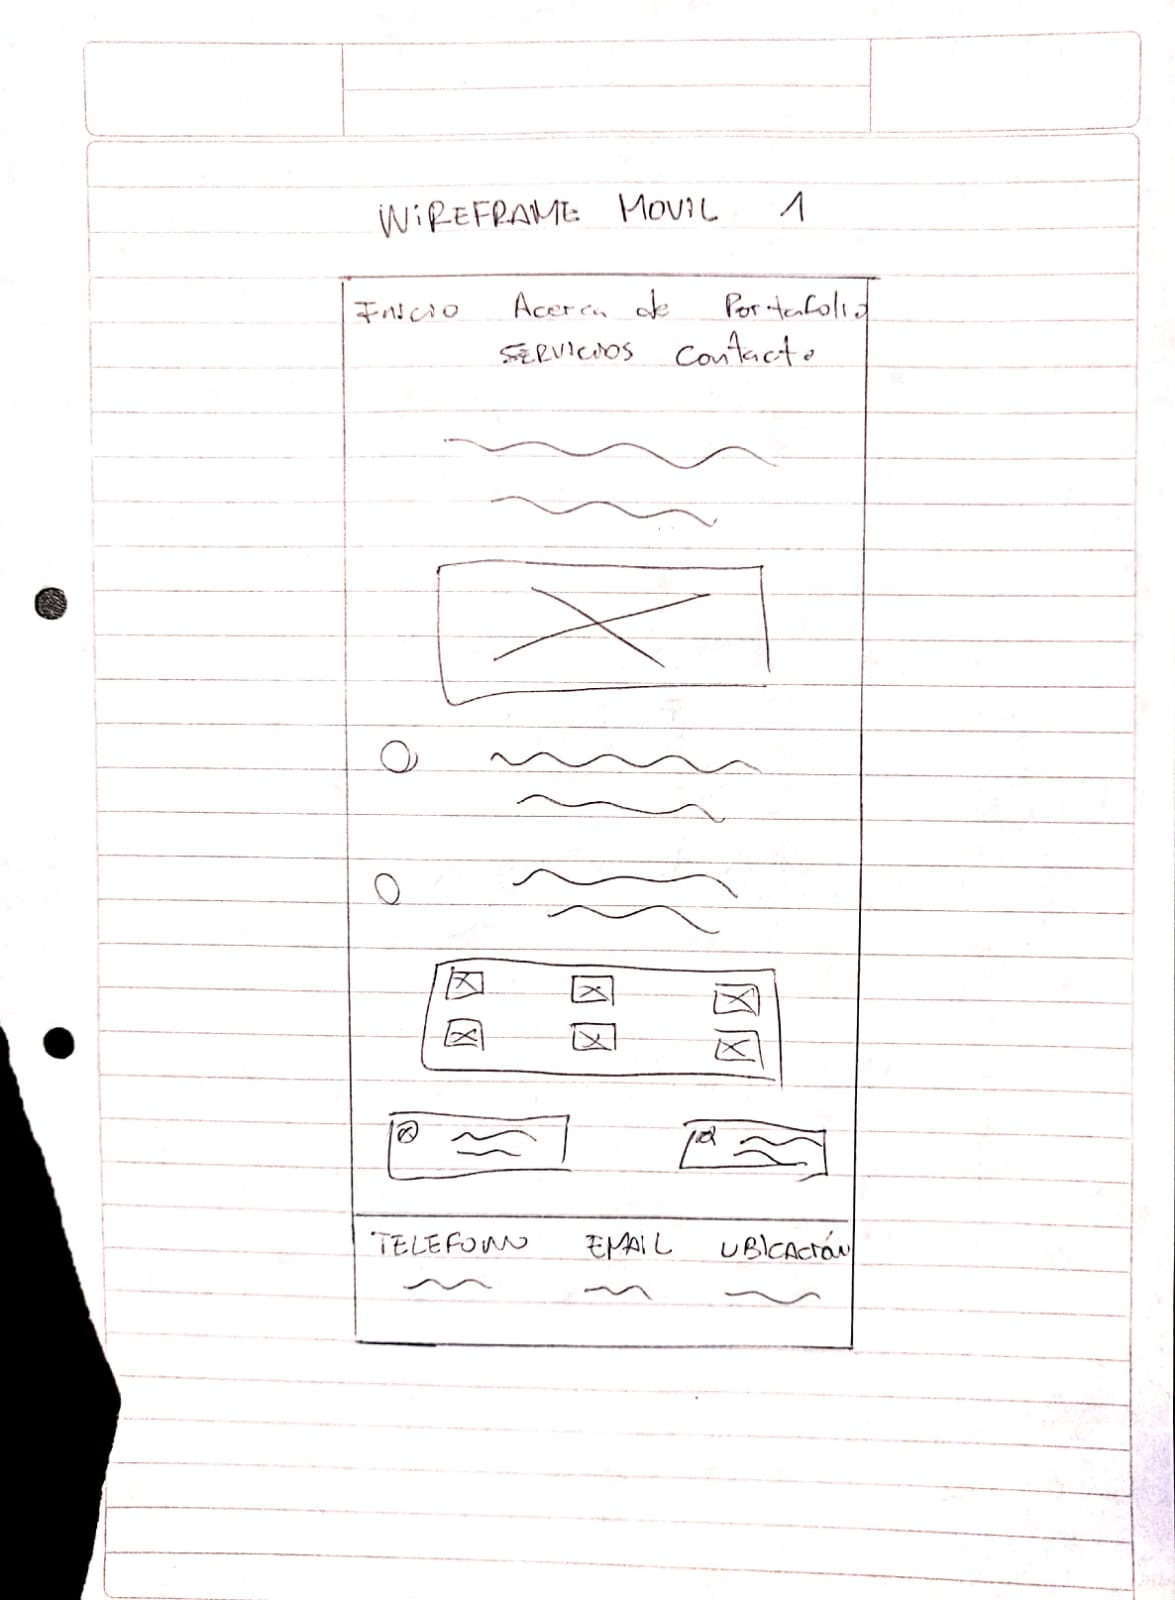 WIREFRAME MOVIL 1
Inicio Acerca de Portafolio
SERVICIOS Contacto
TELEFONO EMAIL UBICACIÓN